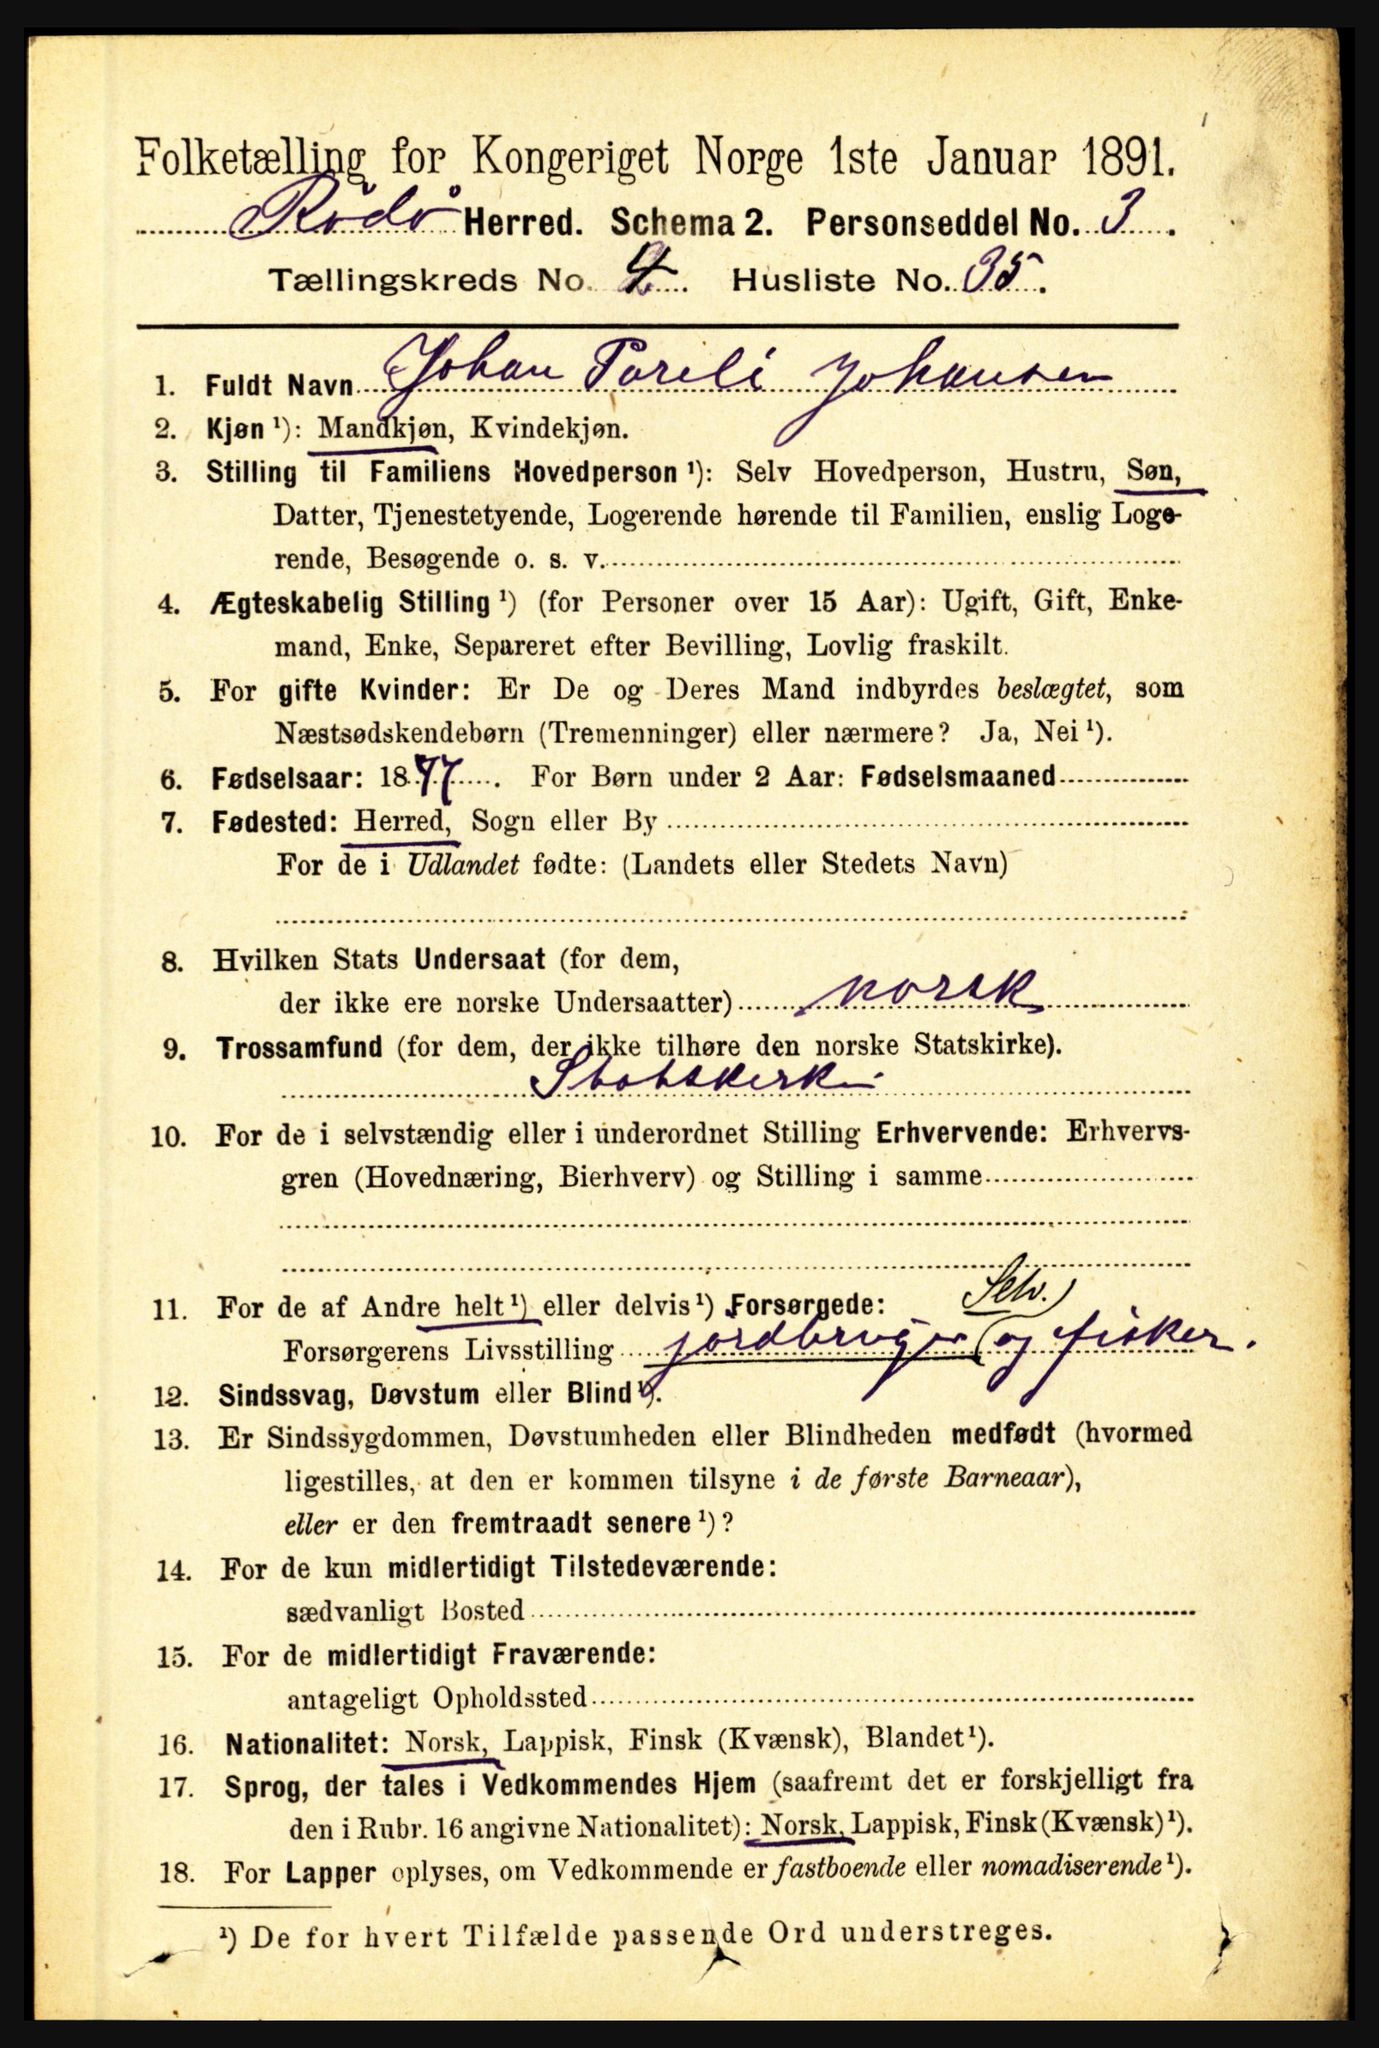 Folketælling for Kongeriget Norge 1ste Januar 1891.
Rödö Herred. Schema 2. Personseddel No. 3.
Tællingskreds No. 4. Husliste No. 35.
1. Fuldt Navn Johan Pareli Johansen
2. Kjøn ¹): Mandkjøn, Kvindekjøn.
3. Stilling til Familiens Hovedperson ¹): Selv Hovedperson, Hustru, Søn,
Datter, Tjenestetyende, Logerende hørende til Familien, enslig Loge-
rende, Besøgende o. s. v.
4. Ægteskabelig Stilling ¹) (for Personer over 15 Aar): Ugift, Gift, Enke-
mand, Enke, Separeret efter Bevilling, Lovlig fraskilt.
5. For gifte Kvinder: Er De og Deres Mand indbyrdes beslægtet, som
Næstsødskendebørn (Tremenninger) eller nærmere? Ja, Nei ¹).
6. Fødselsaar: 1877. For Børn under 2 Aar: Fødselsmaaned
7. Fødested: Herred, Sogn eller By
For de i Udlandet fødte: (Landets eller Stedets Navn)
8. Hvilken Stats Undersaat (for dem,
der ikke ere norske Undersaatter) norsk
9. Trossamfund (for dem, der ikke tilhøre den norske Statskirke).
Statskirken
10. For de i selvstændig eller i underordnet Stilling Erhvervende: Erhvervs-
gren (Hovednæring, Bierhverv) og Stilling i samme
11. For de af Andre helt ¹) eller delvis ¹) Forsørgede: Selv.
Forsørgerens Livsstilling jordbruger (og fisker.
12. Sindssvag, Døvstum eller Blind ¹).
13. Er Sindssygdommen, Døvstumheden eller Blindheden medfødt (hvormed
ligestilles, at den er kommen tilsyne i de første Barneaar),
eller er den fremtraadt senere ¹)?
14. For de kun midlertidigt Tilstedeværende:
sædvanligt Bosted
15. For de midlertidigt Fraværende:
antageligt Opholdssted
16. Nationalitet: Norsk, Lappisk, Finsk (Kvænsk), Blandet ¹).
17. Sprog, der tales i Vedkommendes Hjem (saafremt det er forskjelligt fra
den i Rubr. 16 angivne Nationalitet): Norsk, Lappisk, Finsk (Kvænsk) ¹).
18. For Lapper oplyses, om Vedkommende er fastboende eller nomadiserende ¹).
¹) De for hvert Tilfælde passende Ord understreges.